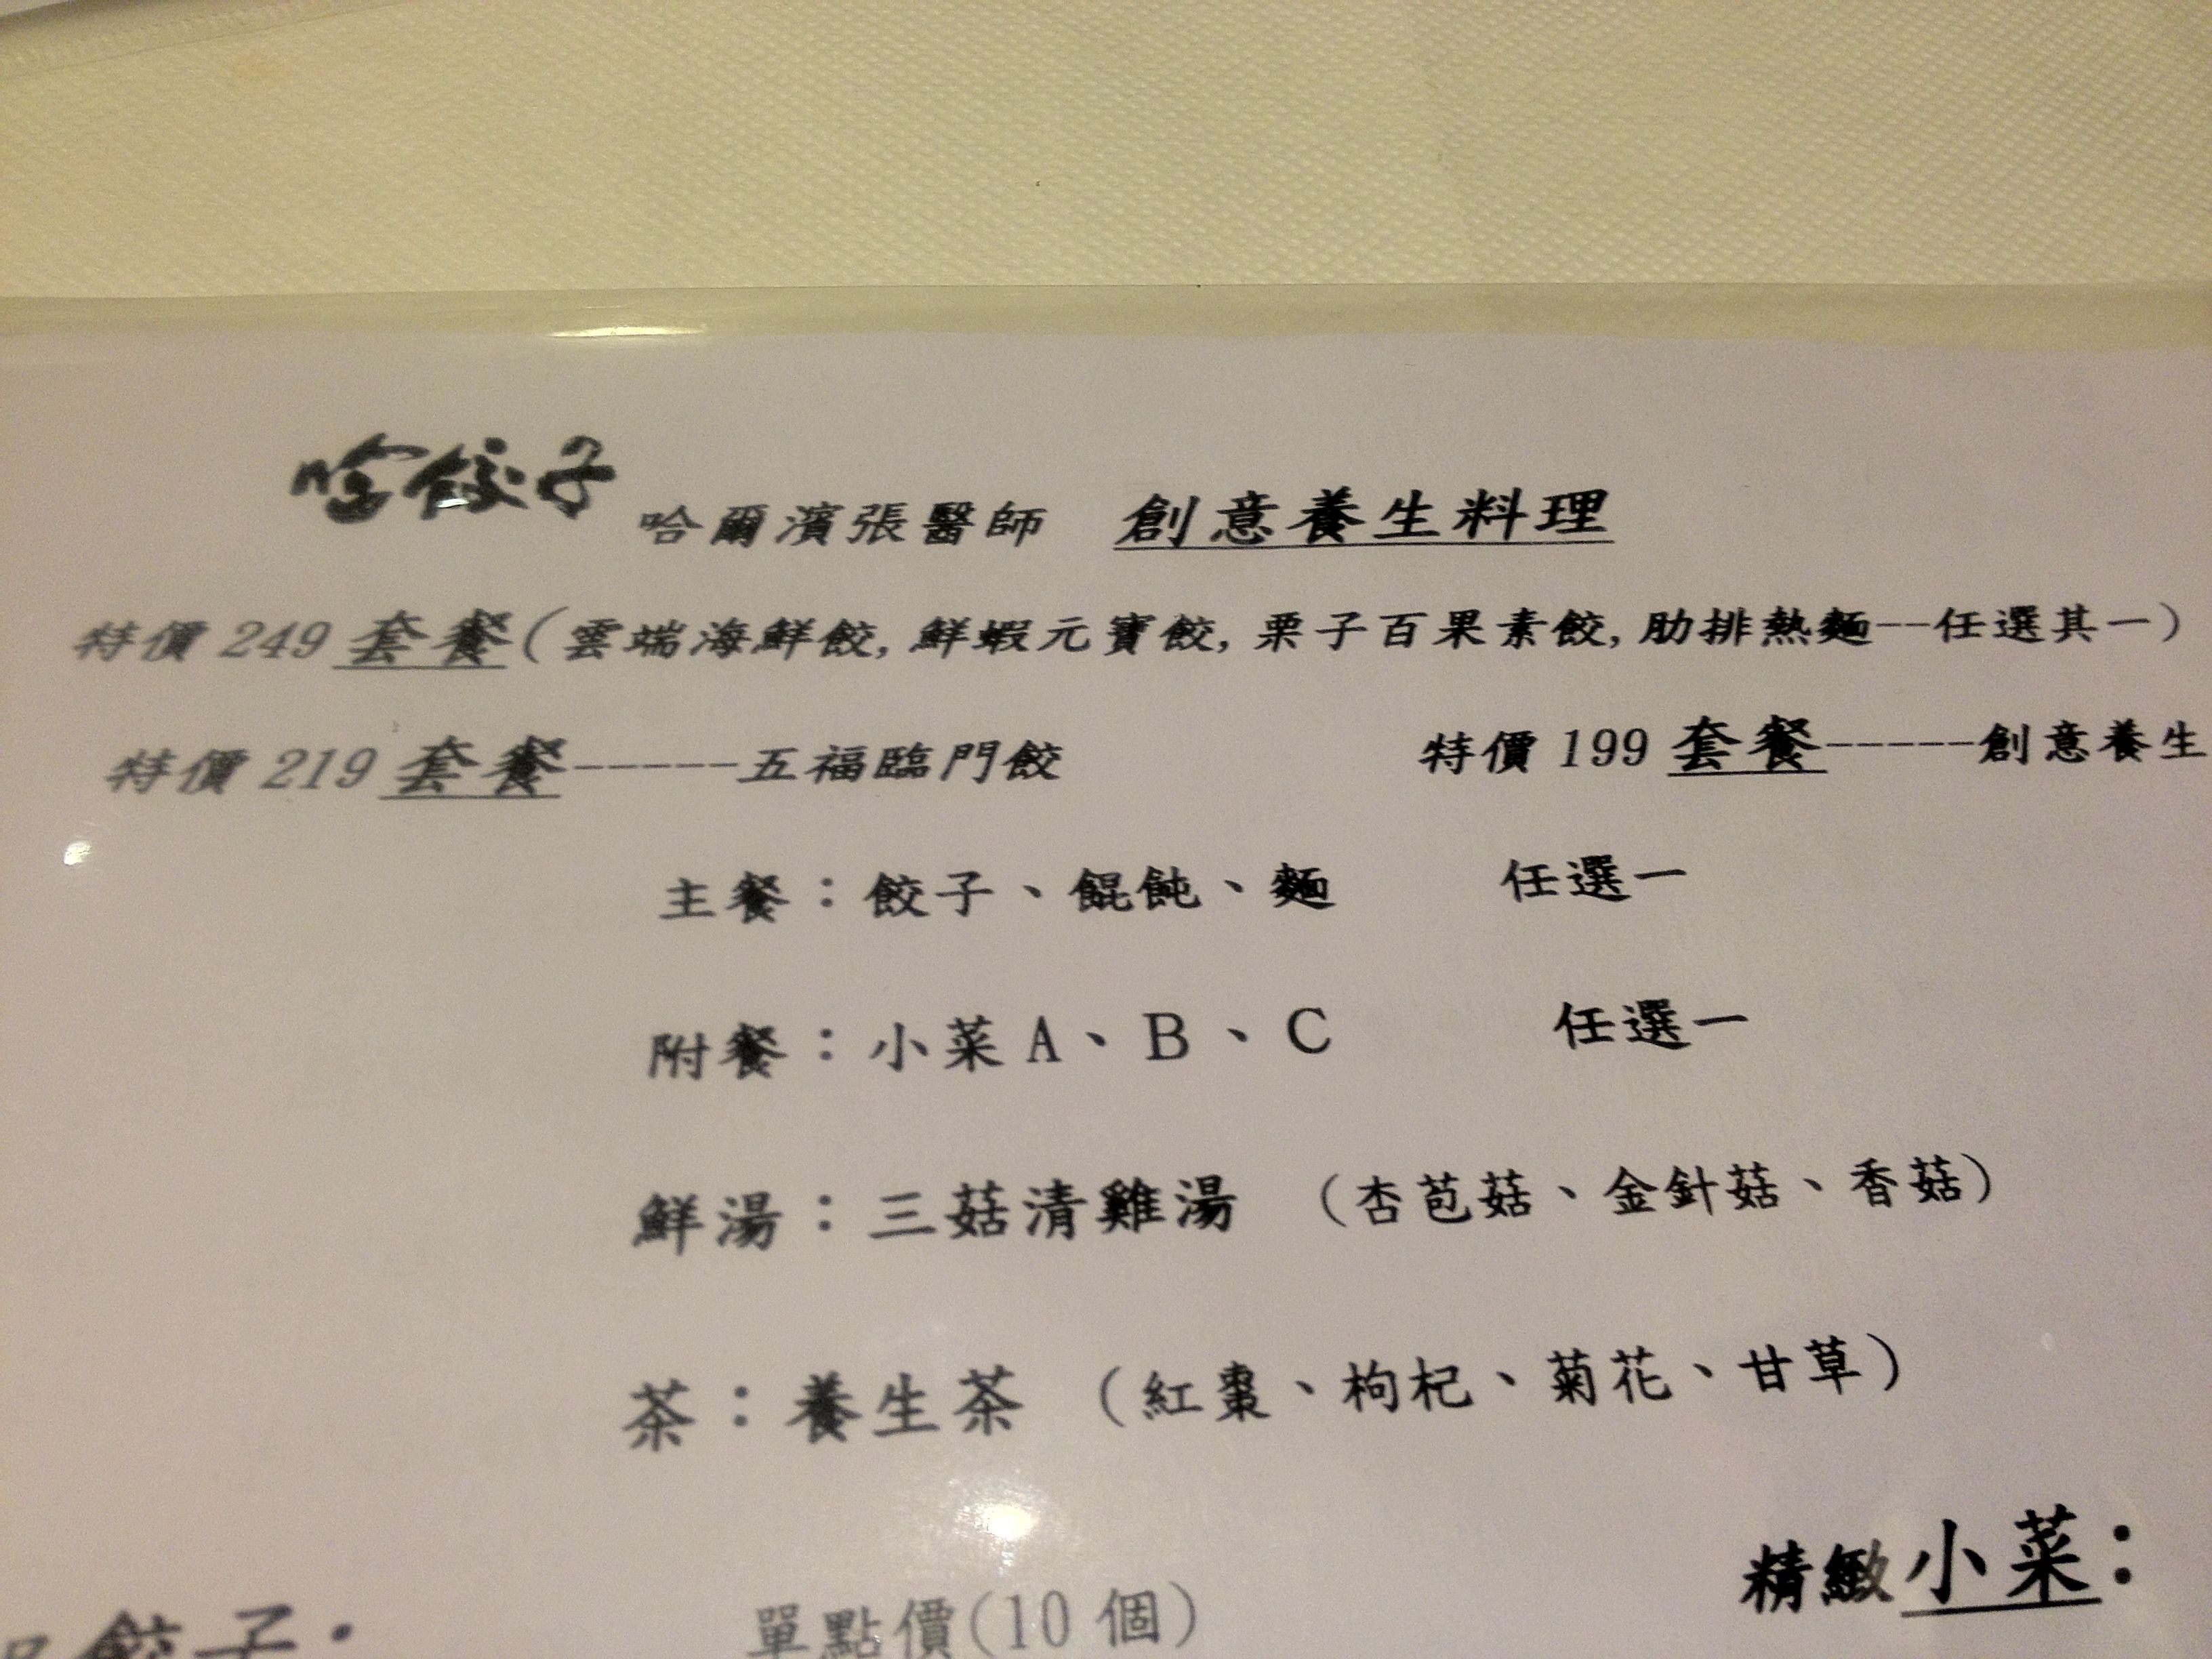 哈餃子 哈爾濱張醫師 創意養生料理
特價 249 套餐(雲端海鮮餃,鮮蝦元寶餃,栗子百果素餃,肋排熱麵--任選其一)
特價 219 套餐-----五福臨門餃 特價 199 套餐-----創意養生
主餐：餃子、餛飩、麵 任選一
附餐：小菜 A、B、C 任選一
鮮湯：三菇清雞湯 (杏苞菇、金針菇、香菇)
茶：養生茶 (紅棗、枸杞、菊花、甘草)
精緻小菜:
餃子: 單點價(10 個)